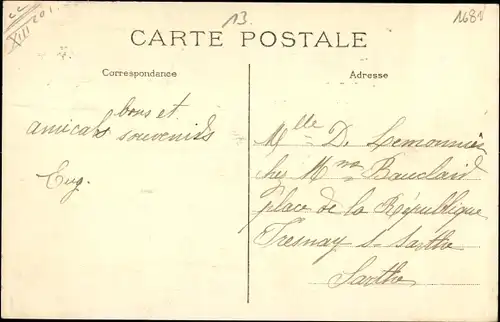 cc
XIII 201
13.
1681
CARTE POSTALE
Correspondance
Adresse
bons et
amicals souvenirs
Eug.
Mlle D. Lemonnier
chez Mme Bauclair
place de la République
Fresnay s- Sarthe
Sarthe